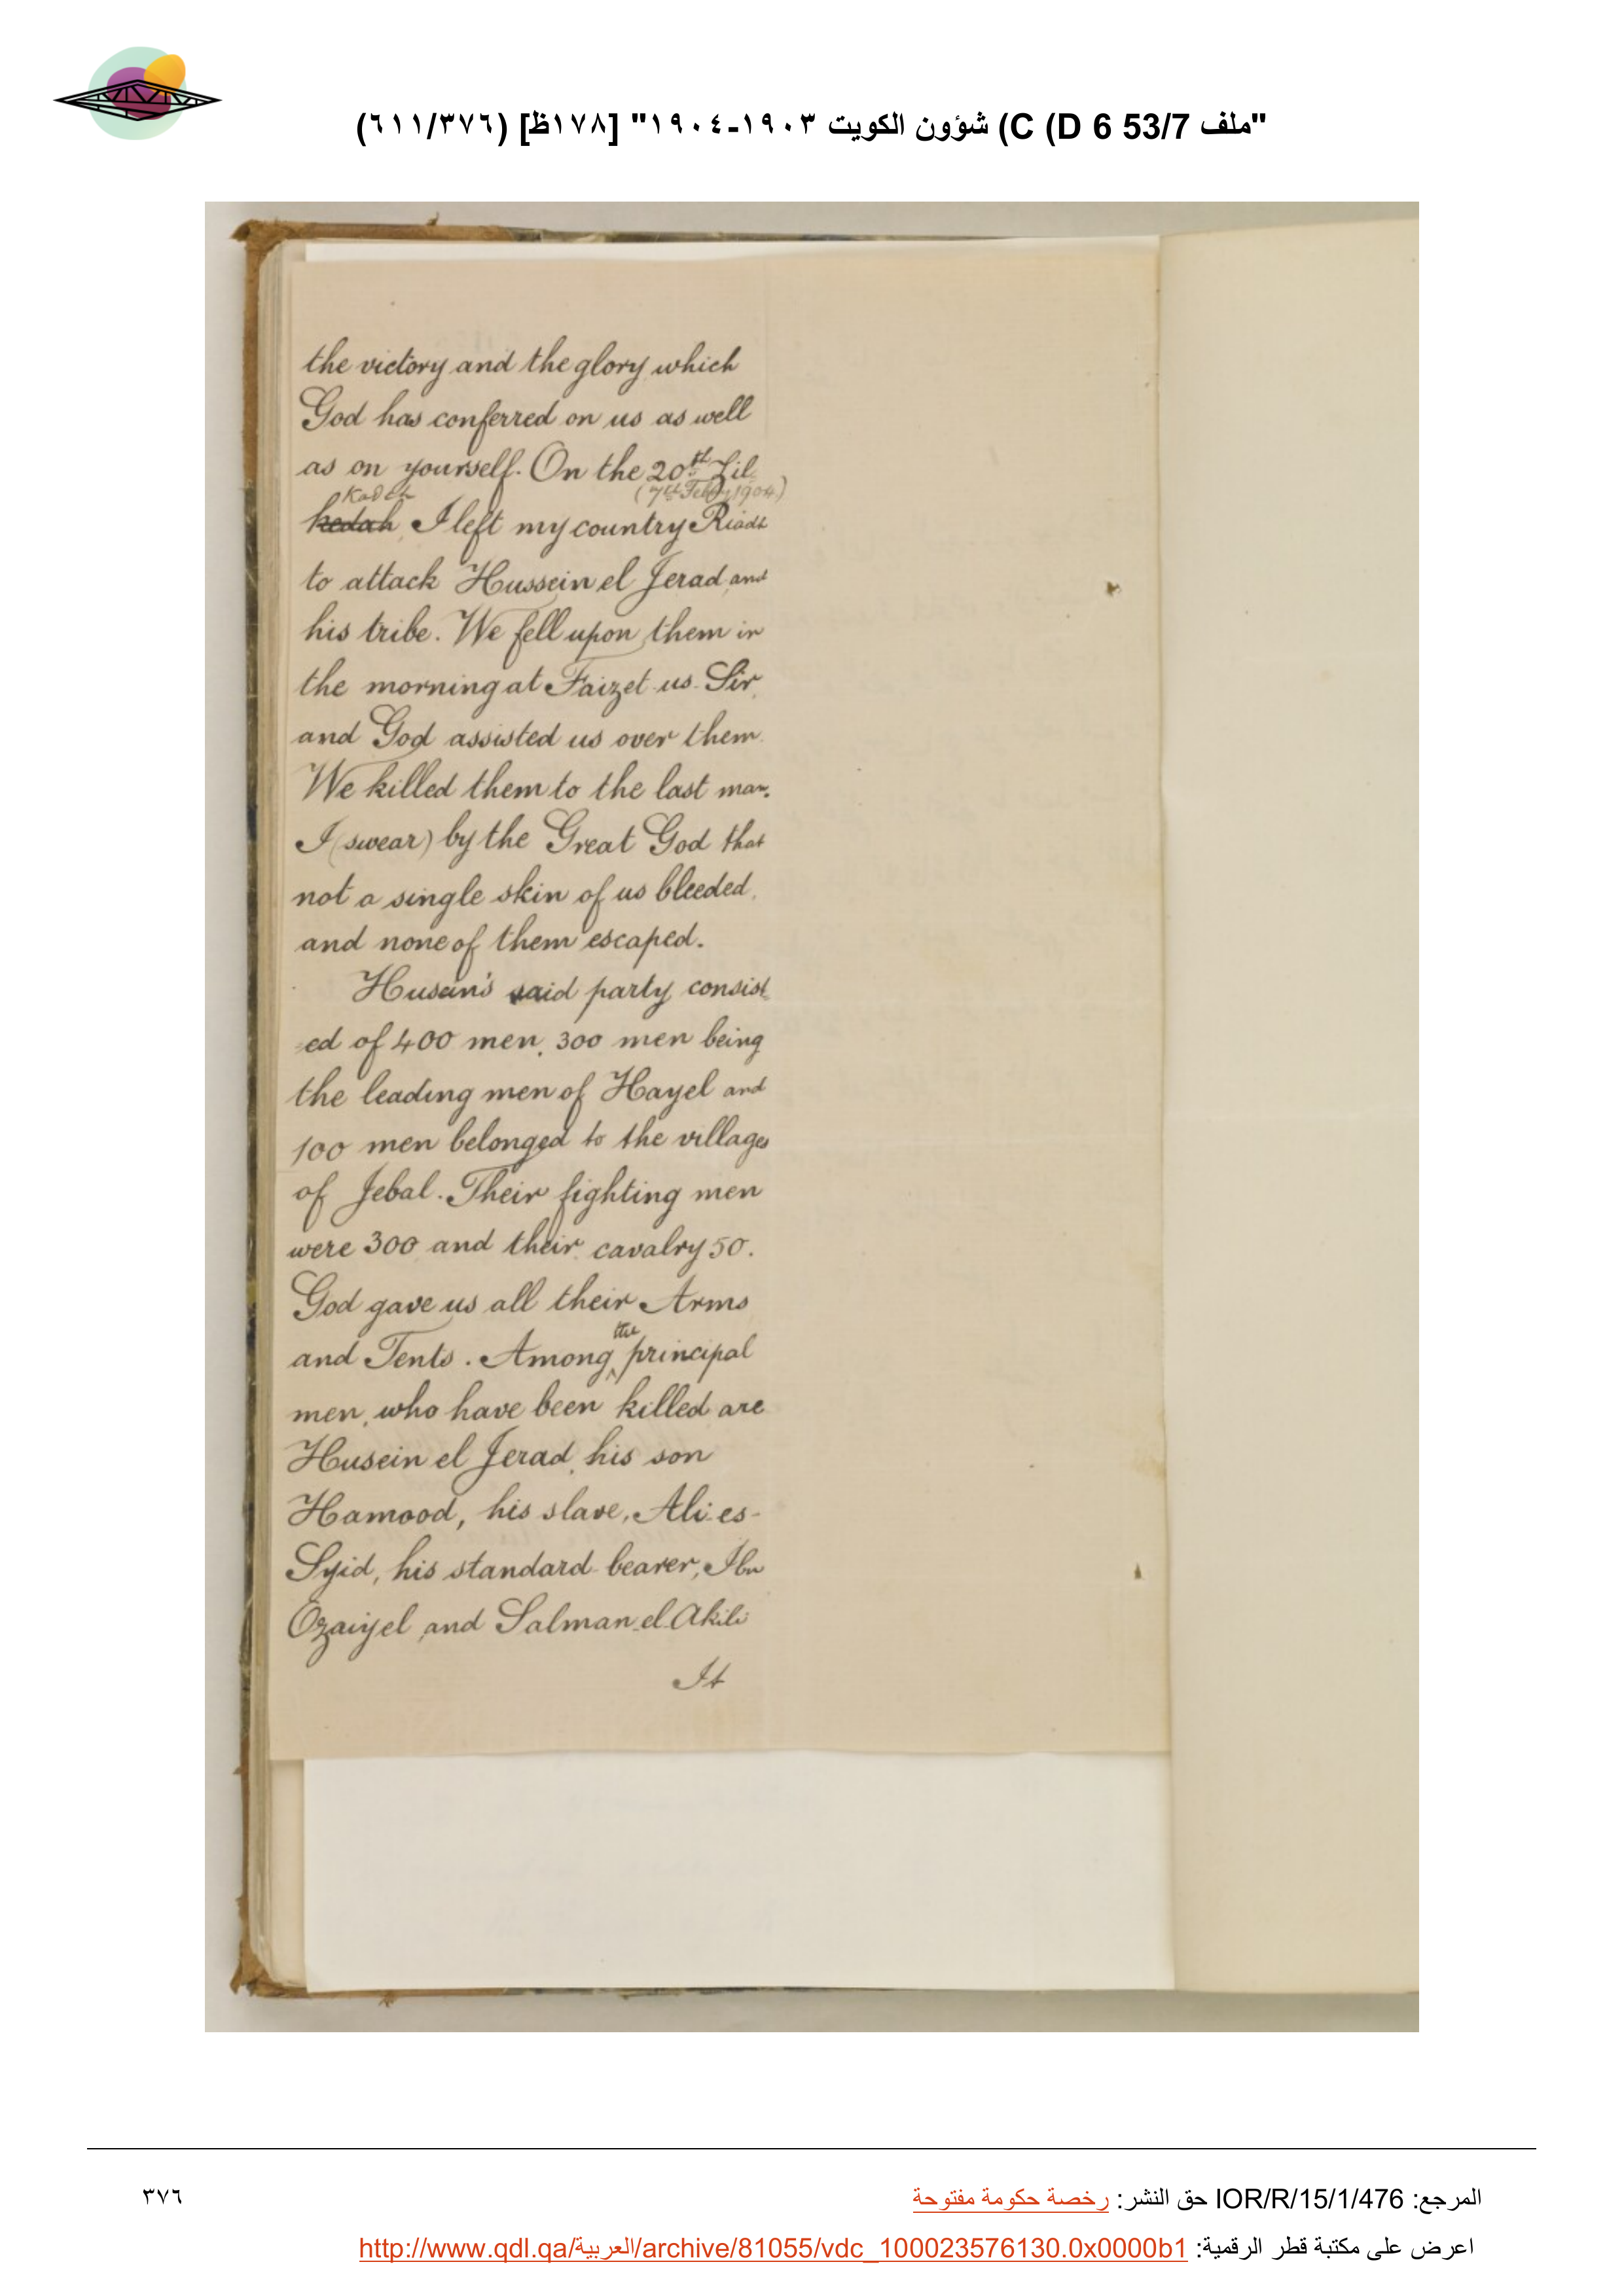 "ملف 53/7 C (D 6) شؤون الكويت ١٩٠٣-١٩٠٤" [١٧٨ظ] (٦١١/٣٧٦)
the victory and the glory which
God has conferred on us as well
as on yourself. On the 20th Zil
Kadeh (7th Feby 1904)
kedah, I left my country Riadh
to attack Hussein el Jerad and
his tribe. We fell upon them in
the morning at Faizet-us-Sir,
and God assisted us over them.
We killed them to the last man.
I (swear) by the Great God that
not a single skin of us bleeded,
and none of them escaped.
Husein's said party consist
-ed of 400 men, 300 men being
the leading men of Hayel and
100 men belonged to the villages
of Jebal. Their fighting men
were 300 and their cavalry 50.
God gave us all their Arms
and Tents. Among the principal
men, who have been killed are
Husein el Jerad, his son
Hamood, his slave, Ali-es-
Syid, his standard-bearer, Ibn
Ozaiyel and Salman-el-Akili
It
المرجع: IOR/R/15/1/476 حق النشر: رخصة حكومة مفتوحة
٣٧٦
اعرض على مكتبة قطر الرقمية: http://www.qdl.qa/العربية/archive/81055/vdc_100023576130.0x0000b1